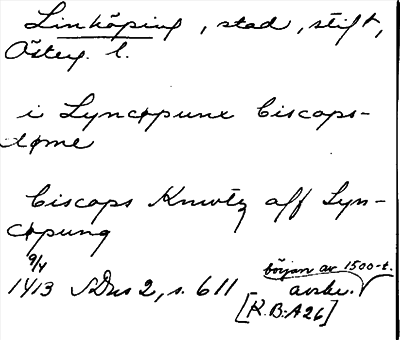 Linköping, stad, stift,
Österg. l.
i Lyncøpunx biscops-
døme
biscops Knwtz aff Lyn-
cøpung
9/4
1413 SDns 2, s. 611
början av 1500-t.
avskr.
[K.B: A 26]